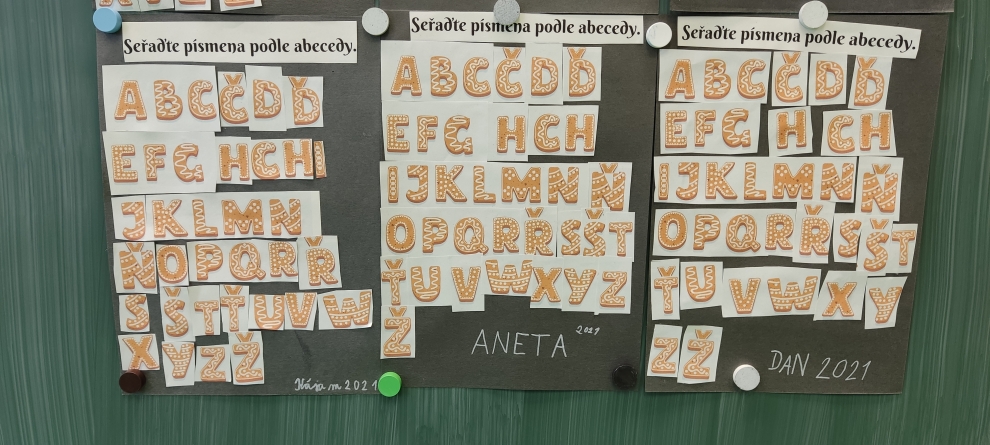 Seřaďte písmena podle abecedy.
A B C Č D Ď
E F G H CH I
J K L M N
Ň O P Q R Ř
S Š T Ť U V W
X Y Z Ž
2021
Seřaďte písmena podle abecedy.
A B C Č D Ď
E F G H CH
I J K L M N Ň
O P Q R Ř S Š T
Ť U V W X Y Z
Ž
ANETA 2021
Seřaďte písmena podle abecedy.
A B C Č D Ď
E F G H CH
I J K L M N Ň
O P Q R Ř S Š T
Ť U V W X Y
Z Ž
DAN 2021